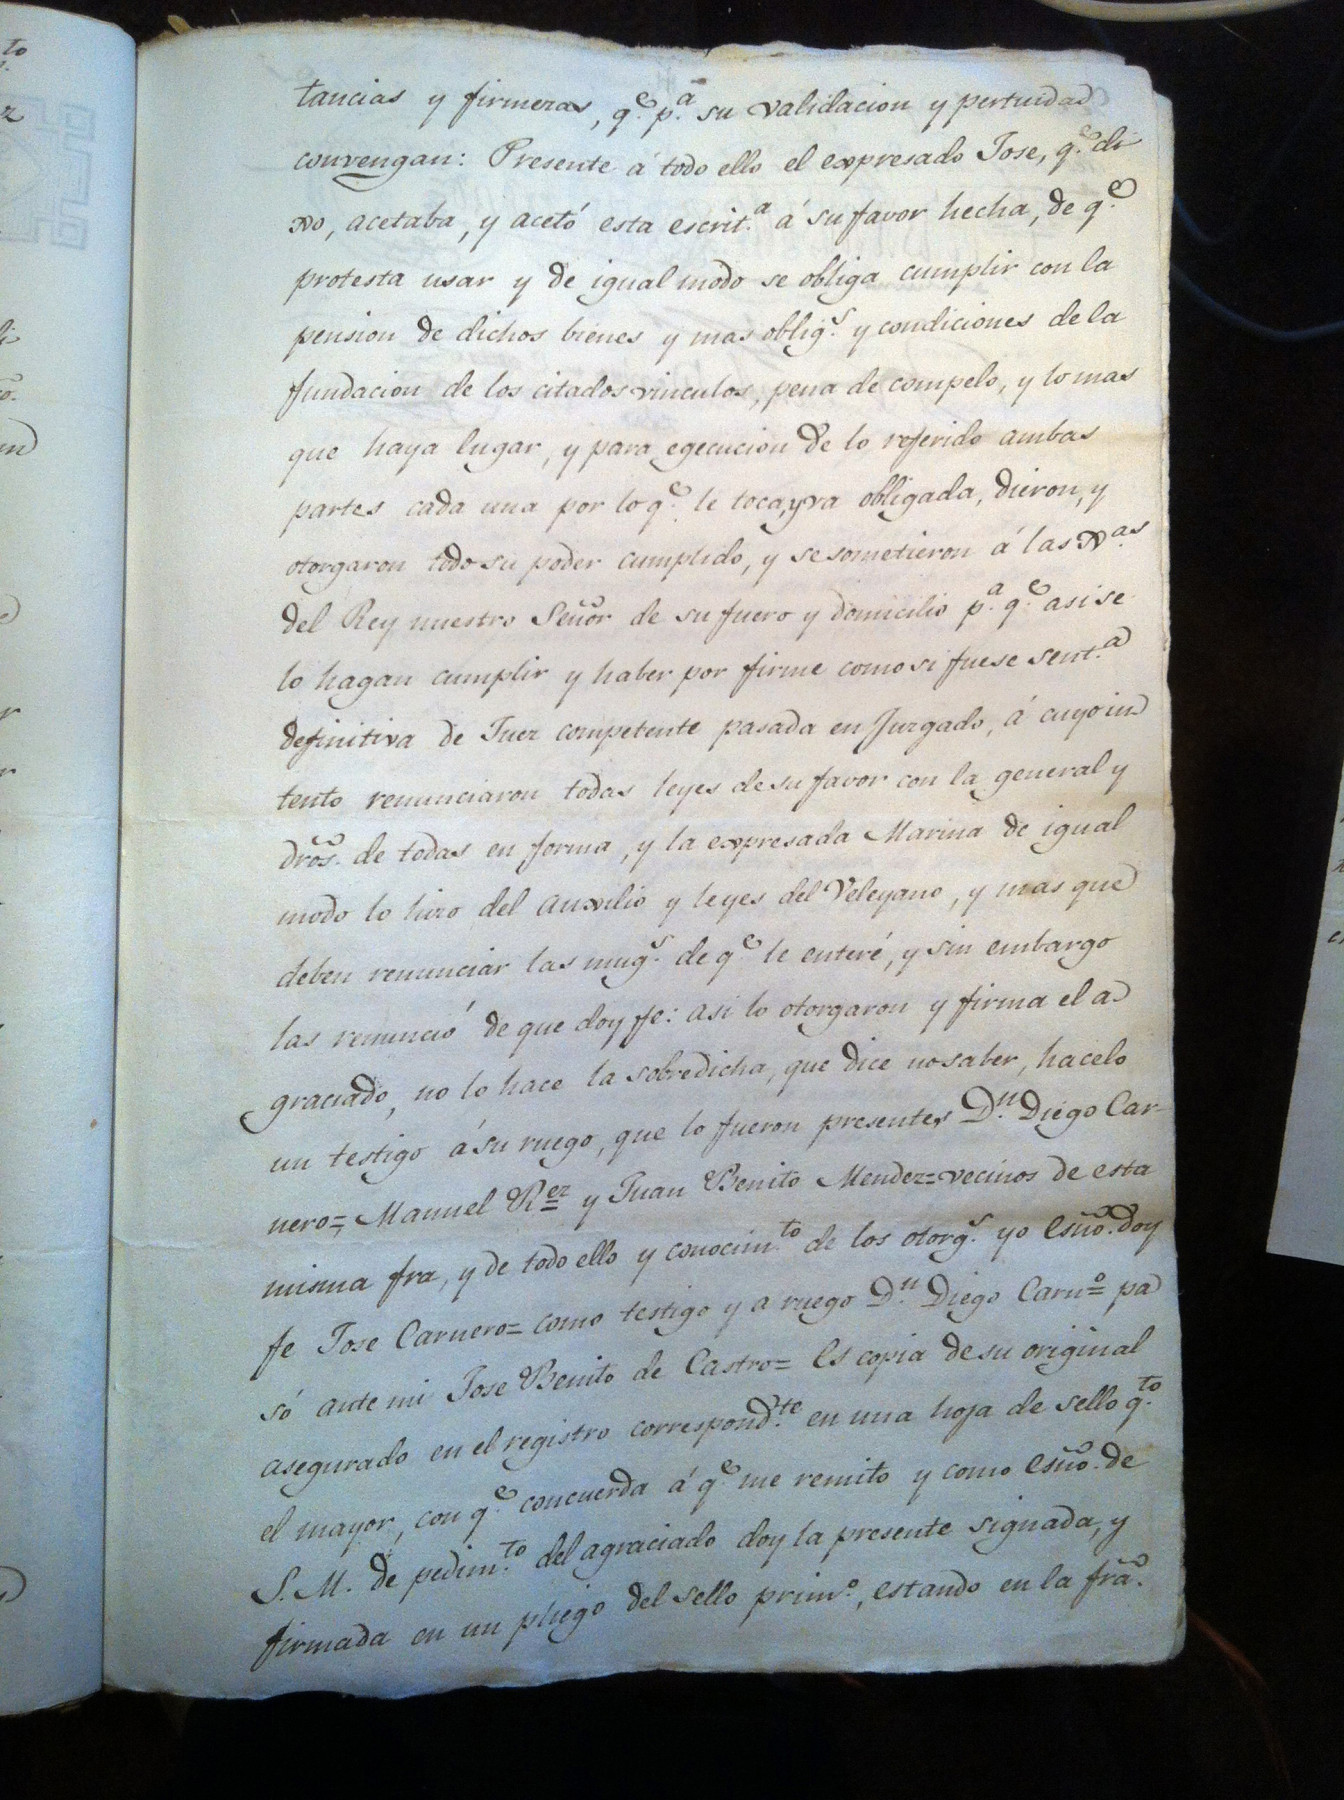 tancias y firmezas, q.e p.a su validacion y pertuidad
convengan: Presente á todo ello el expresado Jose, q.e di
xo, acetaba, y acetó esta escrit.a á su favor hecha, de q.e
protesta usar y de igual modo se obliga cumplir con la
pension de dichos bienes y mas oblig.s y condiciones de la
fundacion de los citados vinculos, pena de compelo, y lo mas
que haya lugar, y para egecucion de lo referido ambas
partes cada una por lo q.e le toca, y va obligada, dieron, y
otorgaron todo su poder cumplido, y se sometieron á las X.as
del Rey nuestro Señor de su fuero y domicilio p.a q.e asi se
lo hagan cumplir y haber por firme como si fuese sent.a
definitiva de Juez competente pasada en Juzgado, á cuyo in
tento renunciaron todas leyes de su favor con la general y
dros. de todas en forma, y la expresada Marina de igual
modo lo hizo del auxilio y leyes del Veleyano, y mas que
deben renunciar las mug.s de q.e le enteré, y sin embargo
las renunció de que doy fe: asi lo otorgaron y firma el a
graciado, no lo hace la sobredicha, que dice no saber, hacelo
un testigo á su ruego, que lo fueron presentes D.n Diego Car-
nero= Manuel R.ez y Juan Benito Mendez= vecinos de esta
misma fra, y de todo ello y conocim.to de los otorg.s yo Esño. doy
fe Jose Carnero= como testigo y a ruego D.n Diego Carn.o= pa
só ante mi Jose Benito de Castro= Es copia de su original
asegurado en el registro correspond.te en una hoja de sello q.to
el mayor, con q.e concuerda á q.e me remito y como Esño. de
S. M. de pedim.to del agraciado doy la presente signada, y
firmada en un pliego del sello prim.o, estando en la fra.